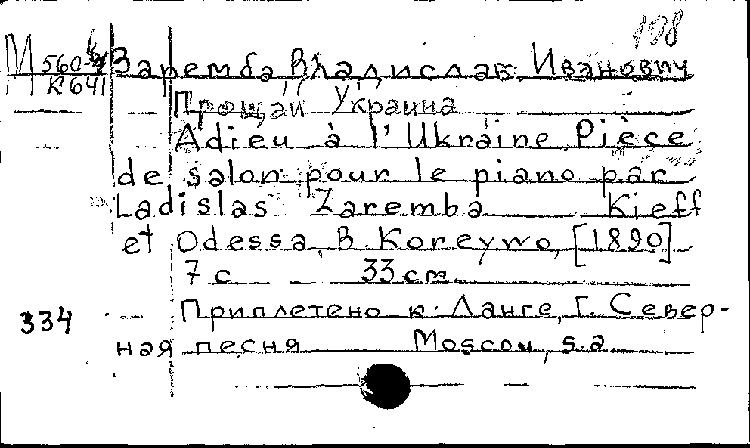 108
М 560 Заремба, Владислав Иванович
К641
Прощай Украина
Adieu à l'Ukraine Pièce
de salon pour le piano par
Ladislas Zaremba Kieff
et Odessa, B. Koreywo, [1890]
7 с 33 cm
334 Приплетено к: Ланге, Г. Север-
ная песня Moscou, s.a.